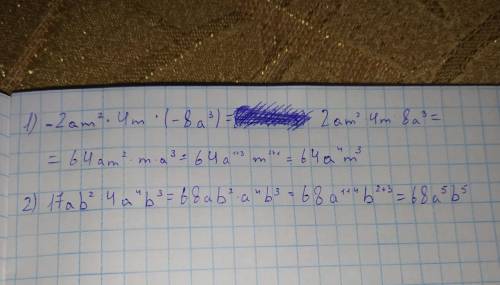 1) -2am²·4m·(-8a³)= 2am²·4m·8a³=
= 64am²·m·a³ = 64a¹⁺³m¹⁺²= 64a⁴m³
2) 17ab²·4a⁴b³=68ab²·a⁴b³=68a¹⁺⁴b²⁺³=68a⁵b⁵